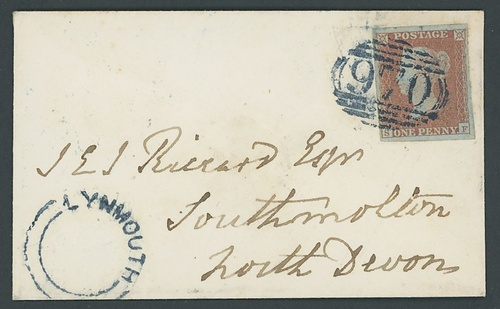 POSTAGE
970
S ONE PENNY F
J E J Riccard Esqr
Southmolton
North Devon
LYNMOUTH